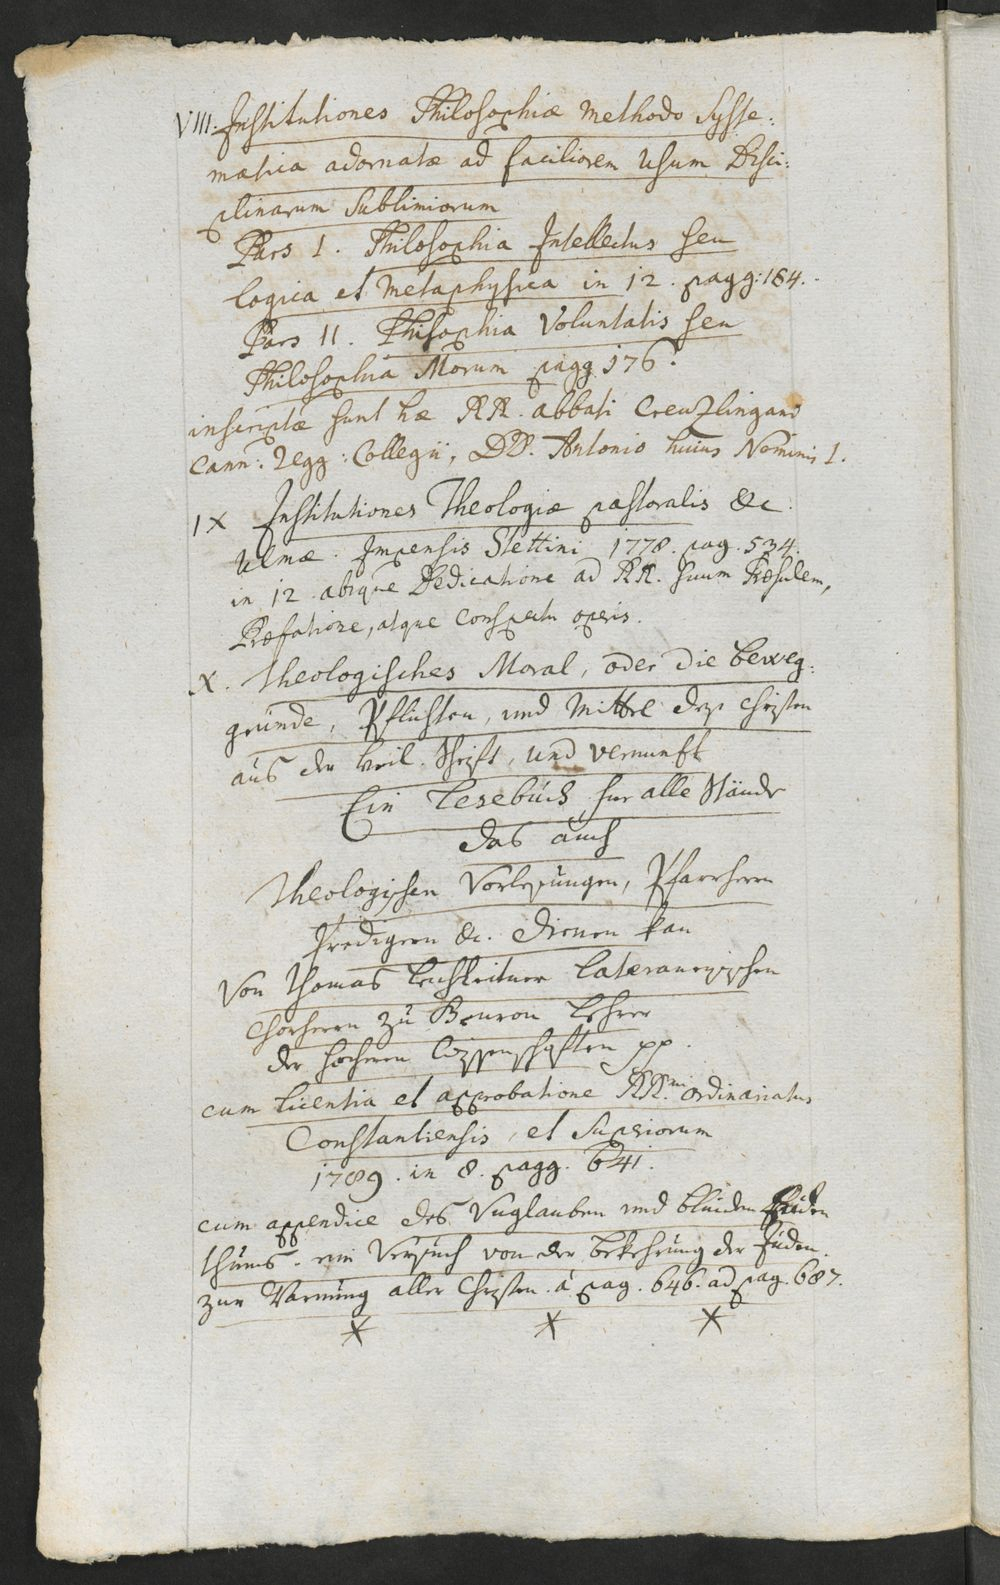 VIII. Institutiones Philosophiæ methodo Syste:
matica adornatæ ad faciliorem Usum Disci:
plinarum Sublimiorum
Pars I. Philosophia Intellectus seu
logica et Metaphysica in 12. pagg: 184.
Pars II. Philosophia Voluntatis seu
Philosophia Morum pagg. 176.
inscriptæ sunt hæ RR. abbati Creuzlingano
Cann: Regg: Collegii, DD. Antonio huius Nominis I.
IX Institutiones Theologiæ pastoralis &c.
Ulmæ. Impensis Stettini 1778. pag. 534.
in 12 absque Dedicatione ad RR. suum Præsulem,
Præfatione, atque Conspectu operis.
X. Theologisches Moral, oder die beweg:
gründe, Pflichten, und Mittel des Christen
aus der heil. Schrift, und Vernunft
Ein Lesebuch für alle Stände
das auch
Theologischen Vorlesungen, Pfarrherrn
Predigern &c. dienen kan
Von Thomas Lateranensischen
Chorherrn zu Beuron Lehrer
der höheren Wissenschaften pp.
cum licentia et approbatione RR.mi ordinariatus
Constantiensis, et Superiorum
1789. in 8. pagg. 641.
cum appendice des Unglauben und blinden Juden
thums. ein Versuch von der bekehrung der Juden.
zur Warnung aller Christen. à pag. 646. ad pag. 687.
* * *